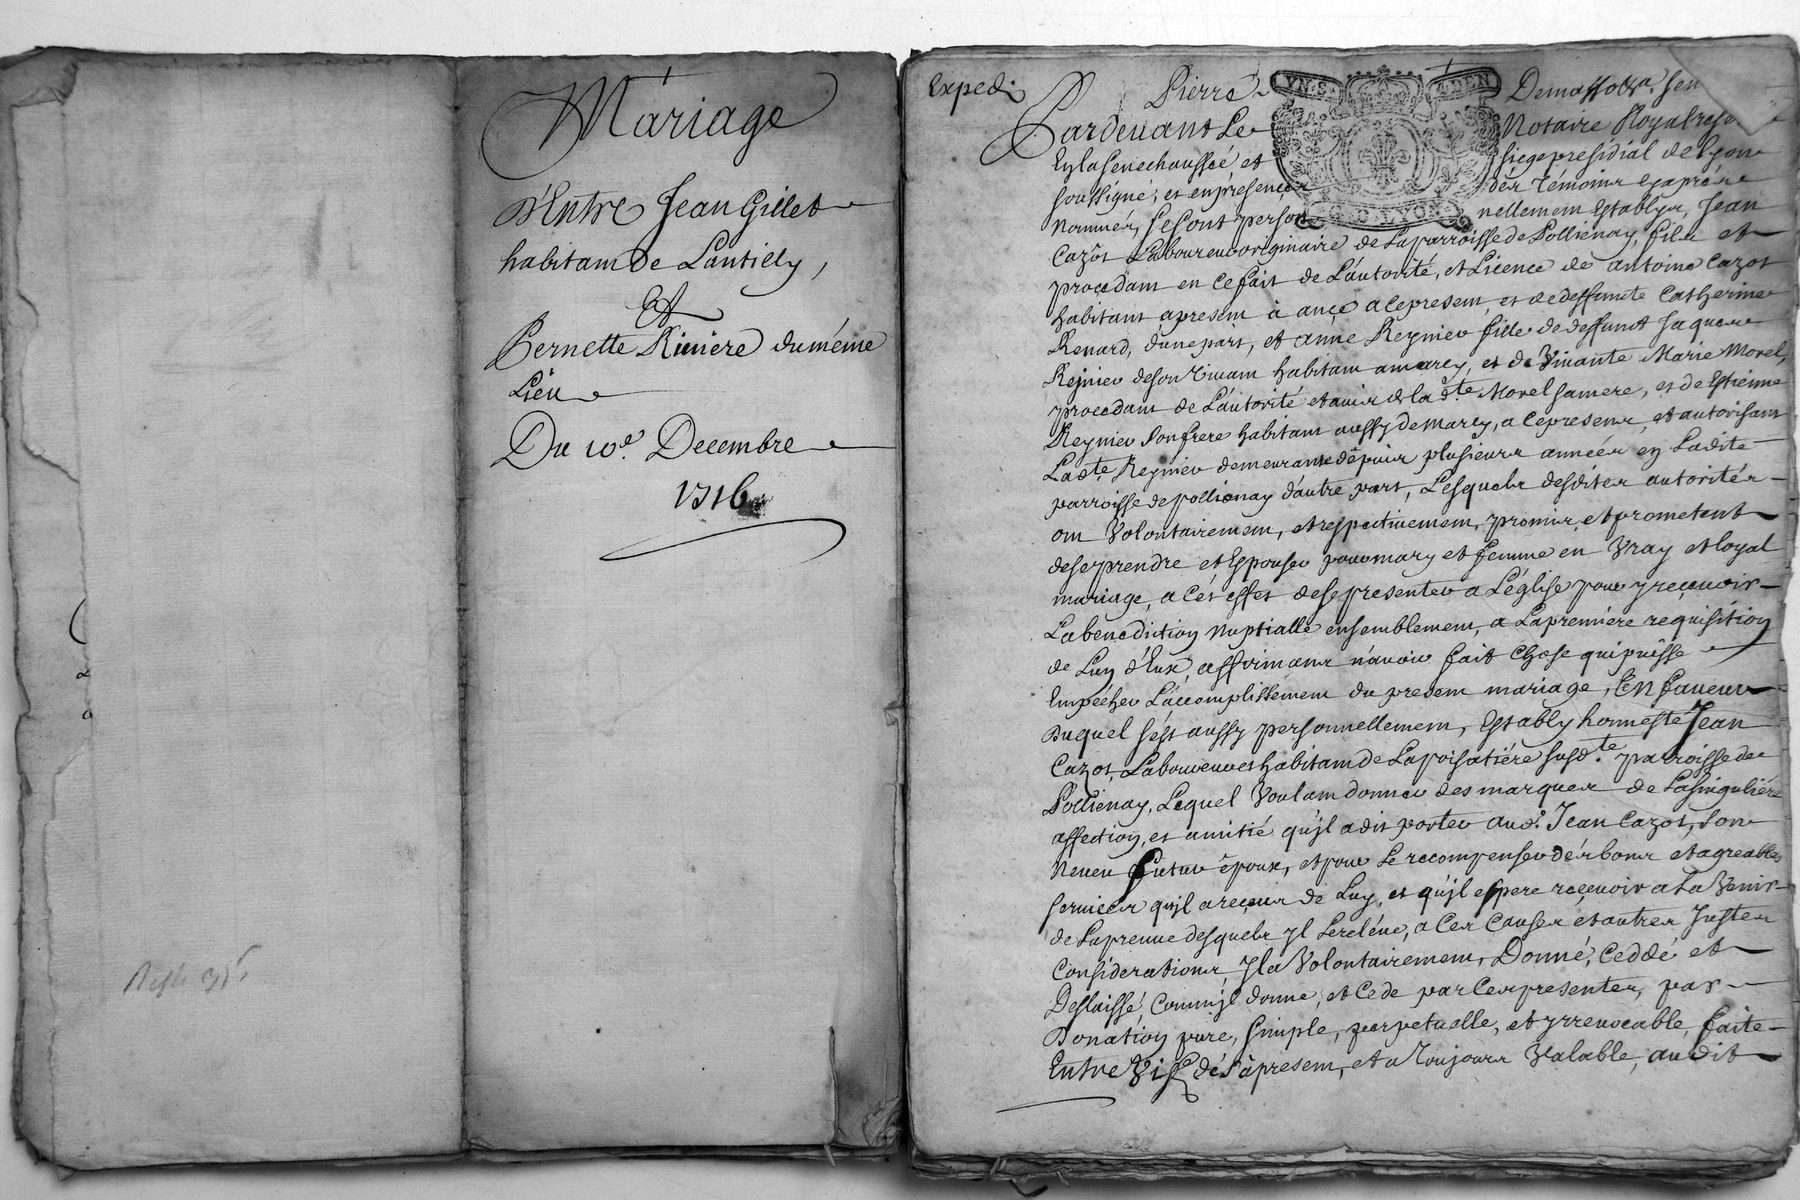 Mariage
D'Entre Jean Gillet
habitant de Lantilly,
Et
Pernette Riviere du méme
Lieu
Du 10e. Decembre
1716
Exped.
Pierre Demassod
Pardevant Le Notaire Royal
En la Senechaussée et siege presidial de Lyon
soussigné, et en presence des Témoins cy apres
Nommés, se sont personnellement Establys, Jean
Cazôt Laboureur originaire de La parroisse de Pollienay, fils et
procedant en ce fait de L'autorité, et Licence de antoine Cazot
habitant a present à ance a ce present, et de deffuncte Catherine
Renard, d'une part, et anne Reynier fille de deffunt Jaques
Rejnier de son vivant habitant a marcy, et de Vivante Marie Morel,
procedant de L'autorité et avis de la dte. Morel sa mere, et de Estienne
Reynier son frere habitant aussy de marcy, a ce presens, et autorisant
Ladte. Reynier demeurante dêpuis plusieurs années en Ladite
parroisse de pollionay d'autre part, Lesquels desdites autorités
ont Volontairement, et respectivement, promis, et promettent
de se prendre et Espouser pour mary et femme en Vray et loyal
mariage, a cét effet de se presenter a L'église pour y recevoir
La benediction Nuptialle ensemblement, a La premiére requisition
de Lun d'Eux, affirmans n'avoir fait chose qui puisse
Empécher L'accomplissement du present mariage, En faveur
Duquel s'est aussy personnellement, Estably honneste Jean
Cazot, Laboureur et habitant de La poisatiére susdte. parroisse de
Pollienay, Lequel Voulant donner des marques de La singuliére
affection, et amitié qu'jl a dit porter audt. Jean Cazot, son
Neveu futur époux, et pour Le recompenser dés bons et agreables
services qu'jl a reçeus de Luy, et qu'jl espere reçevoir a La Venir
de La preuve desquels jl Le reléve, a Ces Causes et autres Justes
Considerations Jl a Volontairement, Donné, Ceddé et
Deslaissé, comm'jl donne, et Cede par Ces presentes, par
Donation pure, simple, perpetuelle, et yrrevocable, faite
Entre Vifs dés a present, et a Toujours Valable, audit